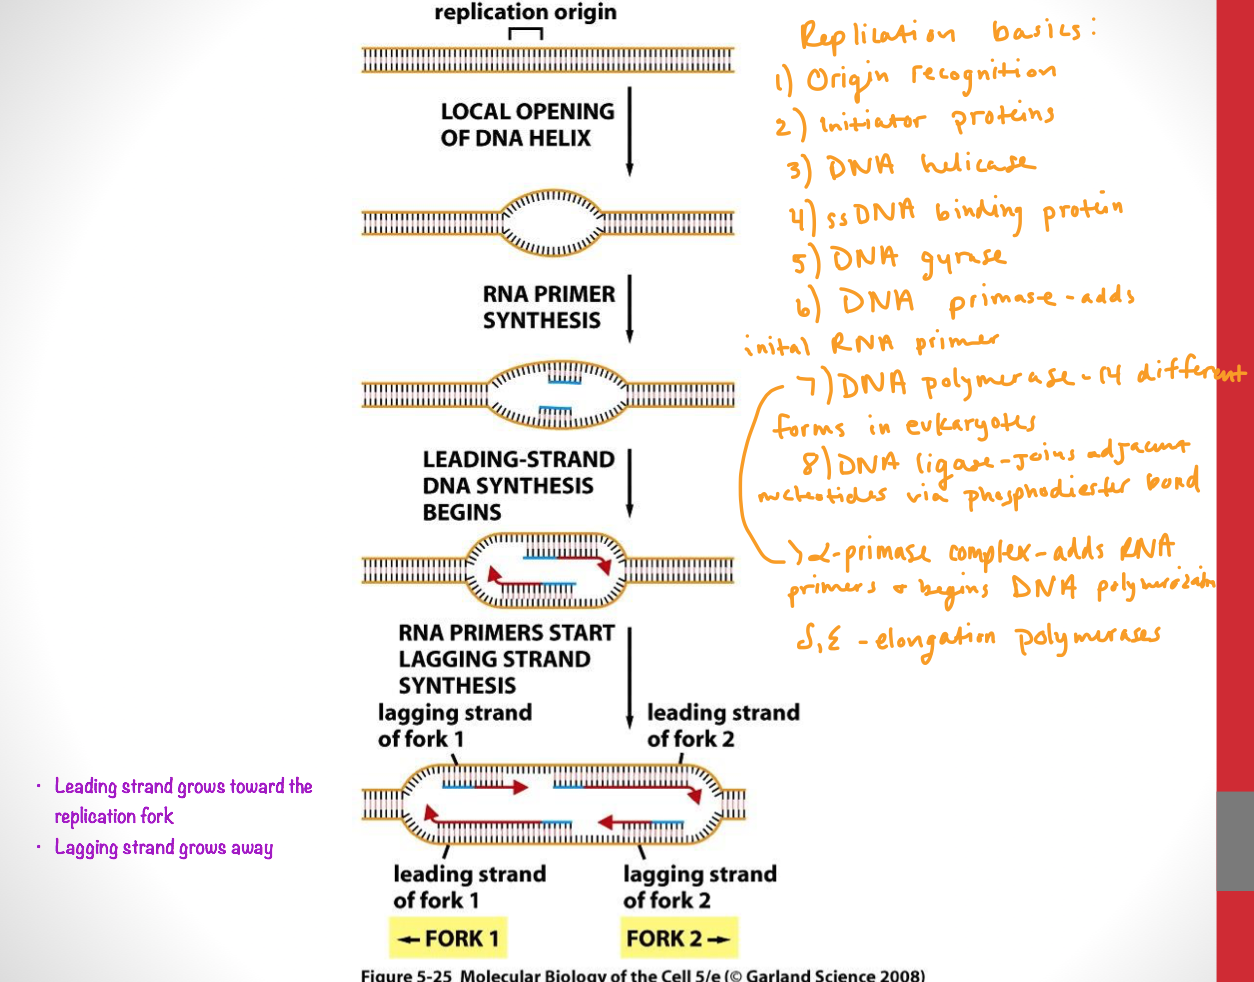 replication origin
LOCAL OPENING
OF DNA HELIX
RNA PRIMER
SYNTHESIS
LEADING-STRAND
DNA SYNTHESIS
BEGINS
RNA PRIMERS START
LAGGING STRAND
SYNTHESIS
lagging strand
of fork 1
leading strand
of fork 2
leading strand
of fork 1
lagging strand
of fork 2
← FORK 1
FORK 2 →
Figure 5-25 Molecular Biology of the Cell 5/e (© Garland Science 2008)
Replication basics:
1) Origin recognition
2) Initiator proteins
3) DNA helicase
4) ssDNA binding protein
5) DNA gyrase
6) DNA primase - adds
inital RNA primer
7) DNA polymerase - 14 different
forms in eukaryotes
8) DNA ligase - joins adjacent
nucleotides via phosphodiester bond
> α-primase complex - adds RNA
primers + begins DNA
δ, ε - elongation polymerases
· Leading strand grows toward the
replication fork
· Lagging strand grows away